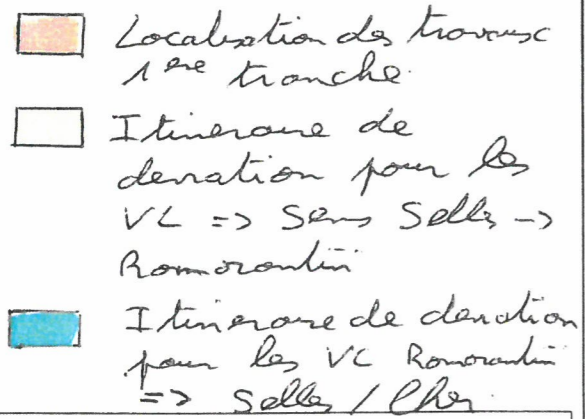 Localisation des travaux
1ère tranche
Itineraire de
deviation pour les
VL => Sens Selles ->
Romorantin
Itineraire de deviation
pour les VL Romorantin
=> Selles / Cher